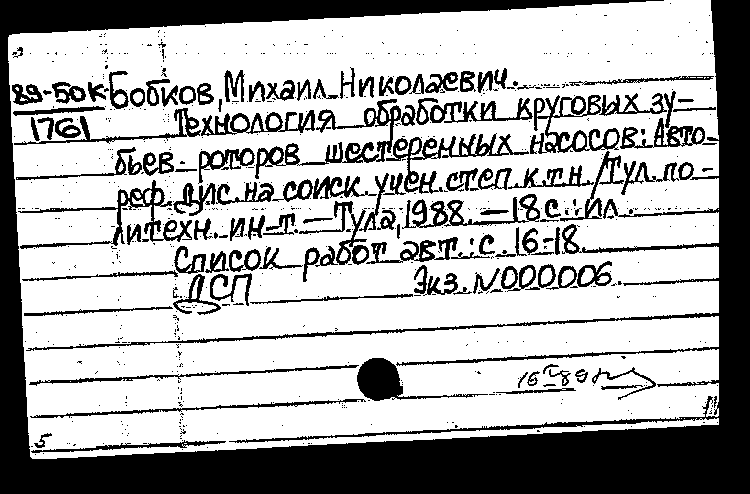 89-50К Бобков, Михаил Николаевич.
1761 Технология обработки круговых зу-
бьев роторов шестеренных насосов: Авто-
реф. дис. на соиск. учен. степ. к.т.н. /Тул. по-
литехн. ин-т. — Тула, 1988. — 18 с.: ил.
Список работ авт.: с. 16-18.
ДСП Экз. N000006.
16 I 89
5